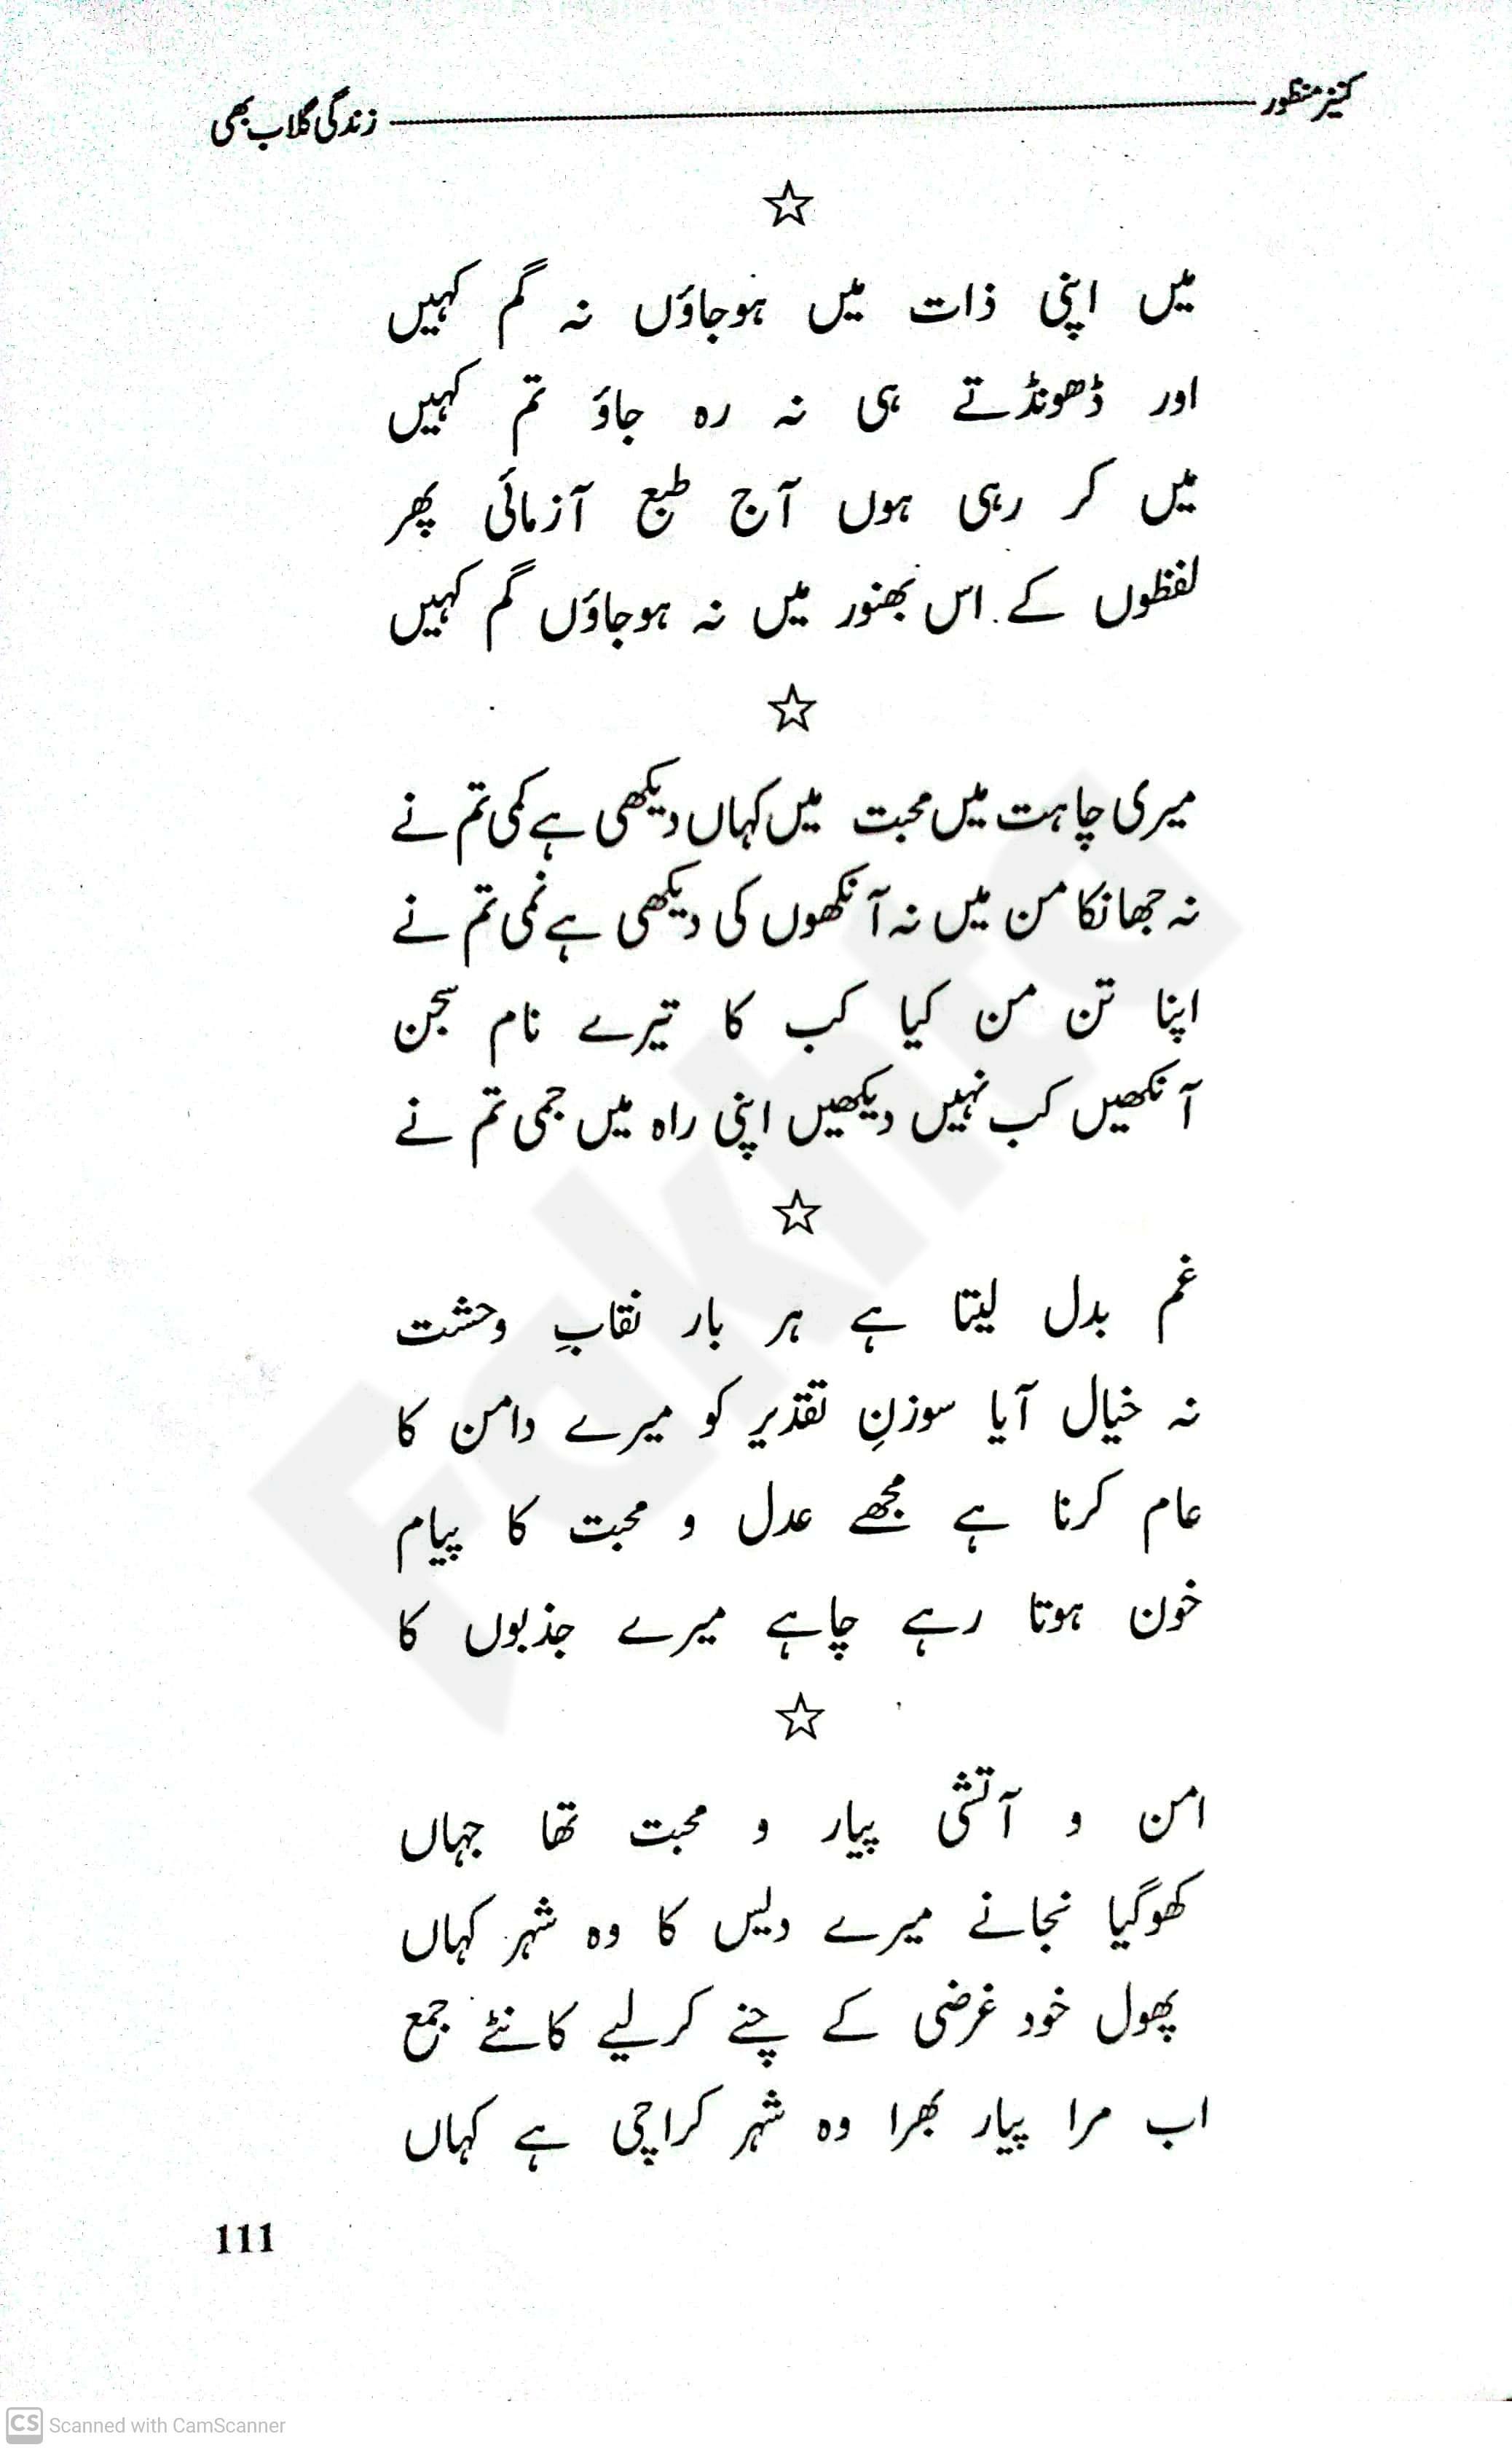 کنیز منظور زندگی گلاب بھی
☆
میں اپنی ذات میں ہوجاؤں نہ گم کہیں
اور ڈھونڈتے ہی نہ رہ جاؤ تم کہیں
میں کر رہی ہوں آج طبع آزمائی پھر
لفظوں کے اس بھنور میں نہ ہوجاؤں گم کہیں
☆
میری چاہت میں محبت میں کہاں دیکھی ہے کمی تم نے
نہ جھانکا من میں نہ آنکھوں کی دیکھی ہے نمی تم نے
اپنا تن من کیا کب کا تیرے نام سجن
آنکھیں کب نہیں دیکھیں اپنی راہ میں جمی تم نے
☆
غم بدل لیتا ہے ہر بار نقابِ وحشت
نہ خیال آیا سوزنِ تقدیر کو میرے دامن کا
عام کرنا ہے مجھے عدل و محبت کا پیام
خون ہوتا رہے چاہے میرے جذبوں کا
☆
امن و آتشی پیار و محبت تھا جہاں
کھوگیا نجانے میرے دیس کا وہ شہر کہاں
پھول خود غرضی کے چنے کرلیے کانٹے جمع
اب مرا پیار بھرا وہ شہر کراچی ہے کہاں
111
Fakhta
CS Scanned with CamScanner